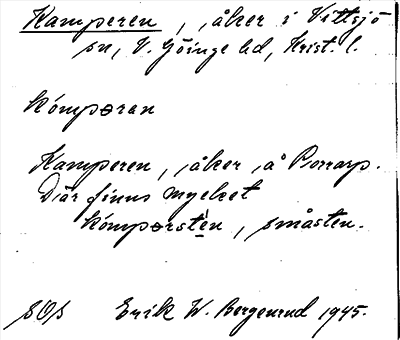 Kamperen, åker i Vittsjö
sn, V. Göinge hd, Krist. l.
kómpəran
Kamperen, åker å Porrarp.
Där finns mycket
kómpərstèn, småsten.
SOS Erik W. Bergenrud 1945.